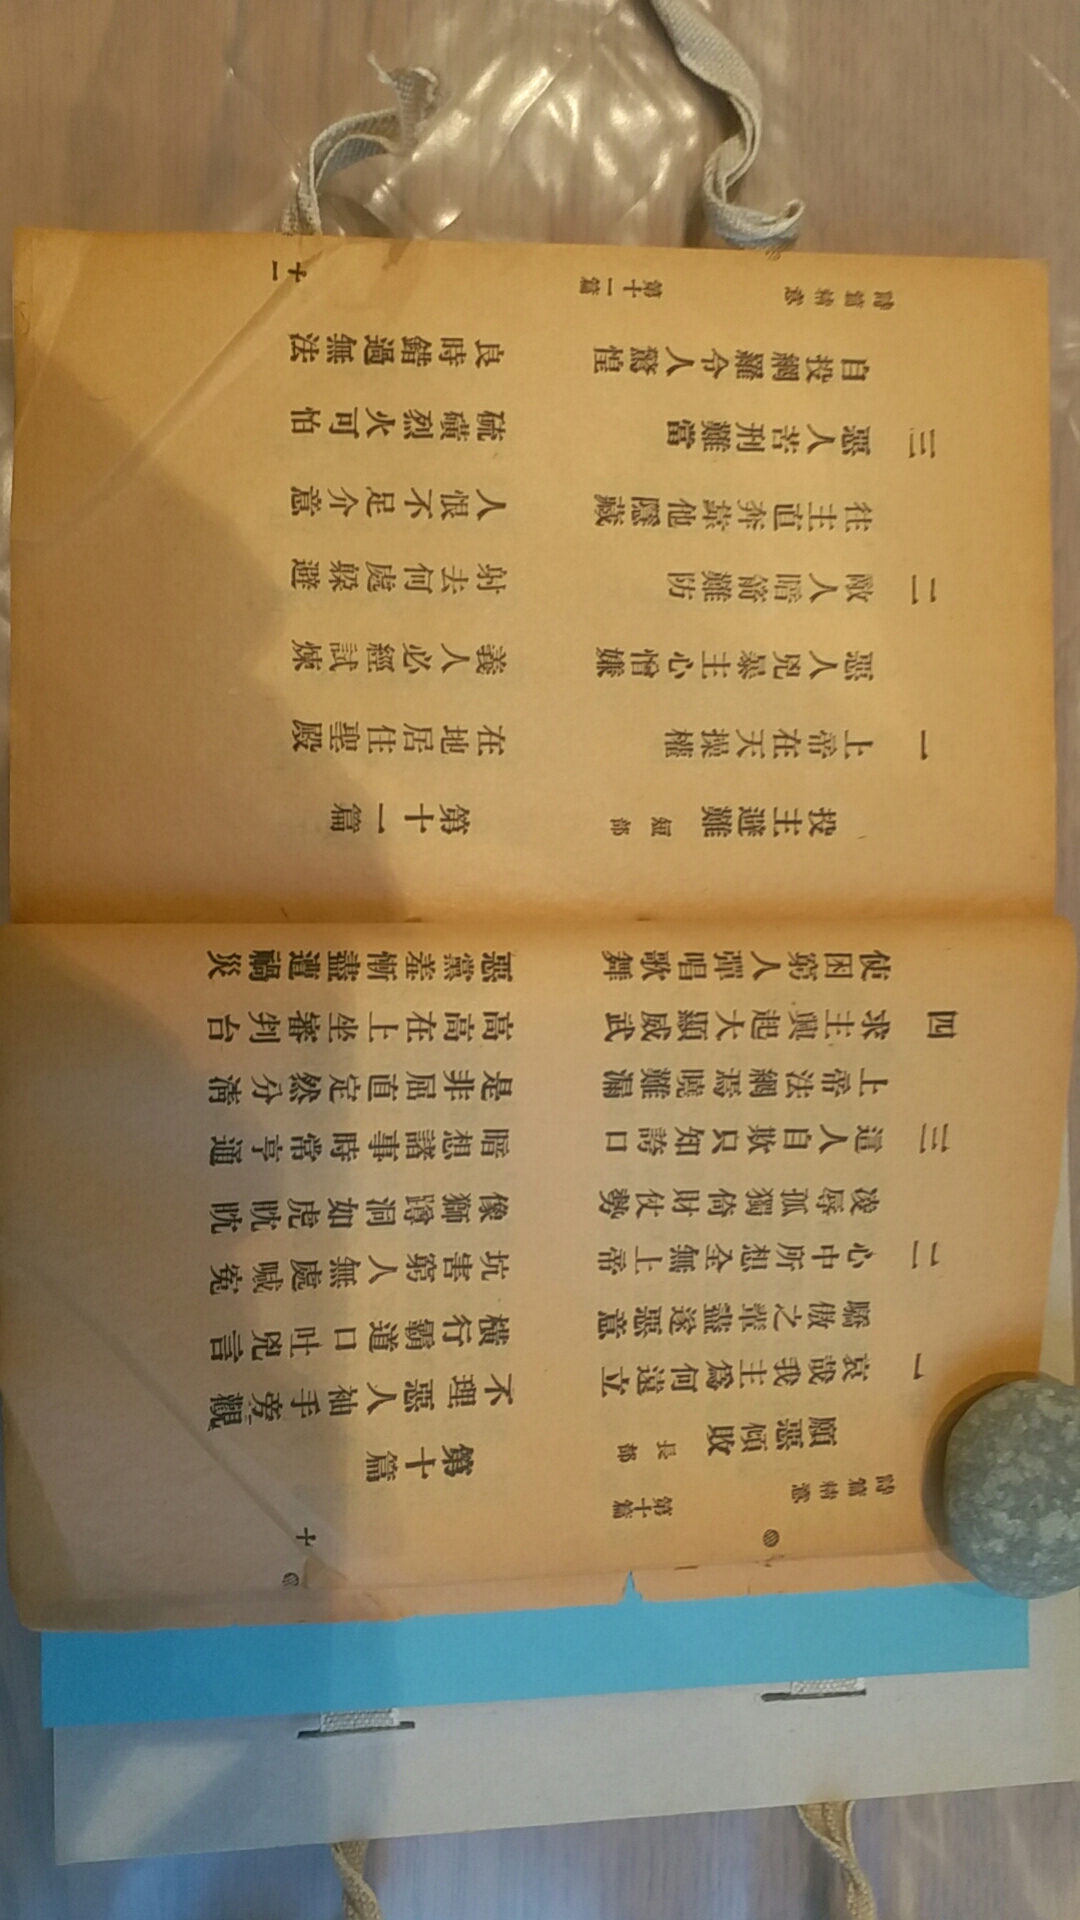 詩篇精意 第十篇 十
願惡傾敗 長部 第十篇
一 哀哉我主為何遠立 不理惡人袖手旁觀
驕傲之輩盡遂惡意 橫行霸道口吐兇言
二 心中所想全無上帝 坑害窮人無處喊冤
凌辱孤獨倚財仗勢 像獅蹲洞如虎眈眈
三 這人自欺只知誇口 暗想諸事時常亨通
上帝法網焉曉難漏 是非屈直定然分清
四 求主興起大顯威武 高高在上坐審判台
使困窮人彈唱歌舞 惡黨羞慚盡遭禍災
投主避難 短部 第十一篇
一 上帝在天操權 在地居住聖殿
惡人兇暴主心憎嫌 義人必經試煉
二 敵人暗箭難防 射去何處躲避
往主直奔靠他隱藏 人恨不足介意
三 惡人苦刑難當 硫磺烈火可怕
自投網羅令人驚惶 良時錯過無法
詩篇精意 第十一篇 十一